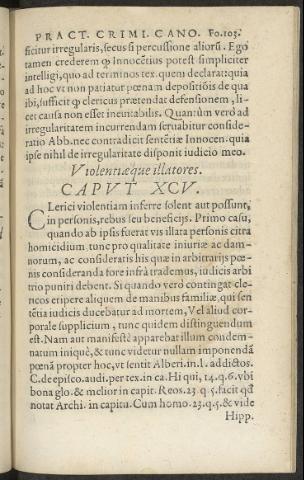 PRACT. CRIMI. CANO. Fo.103.
ficitur irregularis, secus si percussione aliorũ. Ego
tamen crederem ꝙ Innocẽtius potest simpliciter
intelligi, quo ad terminos tex. quem declarat: quia
ad hoc vt non patiatur pœnam depositiõis de qua
ibi, sufficit ꝙ clericus prætendat defensionem, li-
cet causa non esset ineuitabilis. Quantùm verò ad
irregularitatem incurrendam seruabitur conside-
ratio Abb. nec contradicit sentẽtiæ Innocen. quia
ipse nihil de irregularitate disponit iudicio meo.
Violentiæque illatores.
CAPVT XCV.
CLerici violentiam inferre solent aut possunt,
in personis, rebus seu beneficijs. Primo casu,
quando ab ipsis fuerat vis illata personis citra
homicidium tunc pro qualitate iniuriæ ac dam-
norum, ac consideratis his quæ in arbitrarijs pœ-
nis consideranda fore infrà trademus, iudicis arbi
trio puniri debent. Si quando verò contingat cle-
ricos eripere aliquem de manibus familiæ, qui sen
tẽtia iudicis ducebatur ad mortem, Vel aliud cor-
porale supplicium, tunc quidem distinguendum
est. Nam aut manifestè apparebat illum condem-
natum iniquè, & tunc videtur nullam imponendã
pœnã propter hoc, vt sentit Alberi. in. l. addictos.
C. de episco. audi. per tex. in ca. Hi qui, 14. q. 6. vbi
bona glo. & melior in capit. Reos. 23. q. 5. facit qđ
notat Archi. in capitu. Cum homo. 23. q. 5. & vide
Hipp.